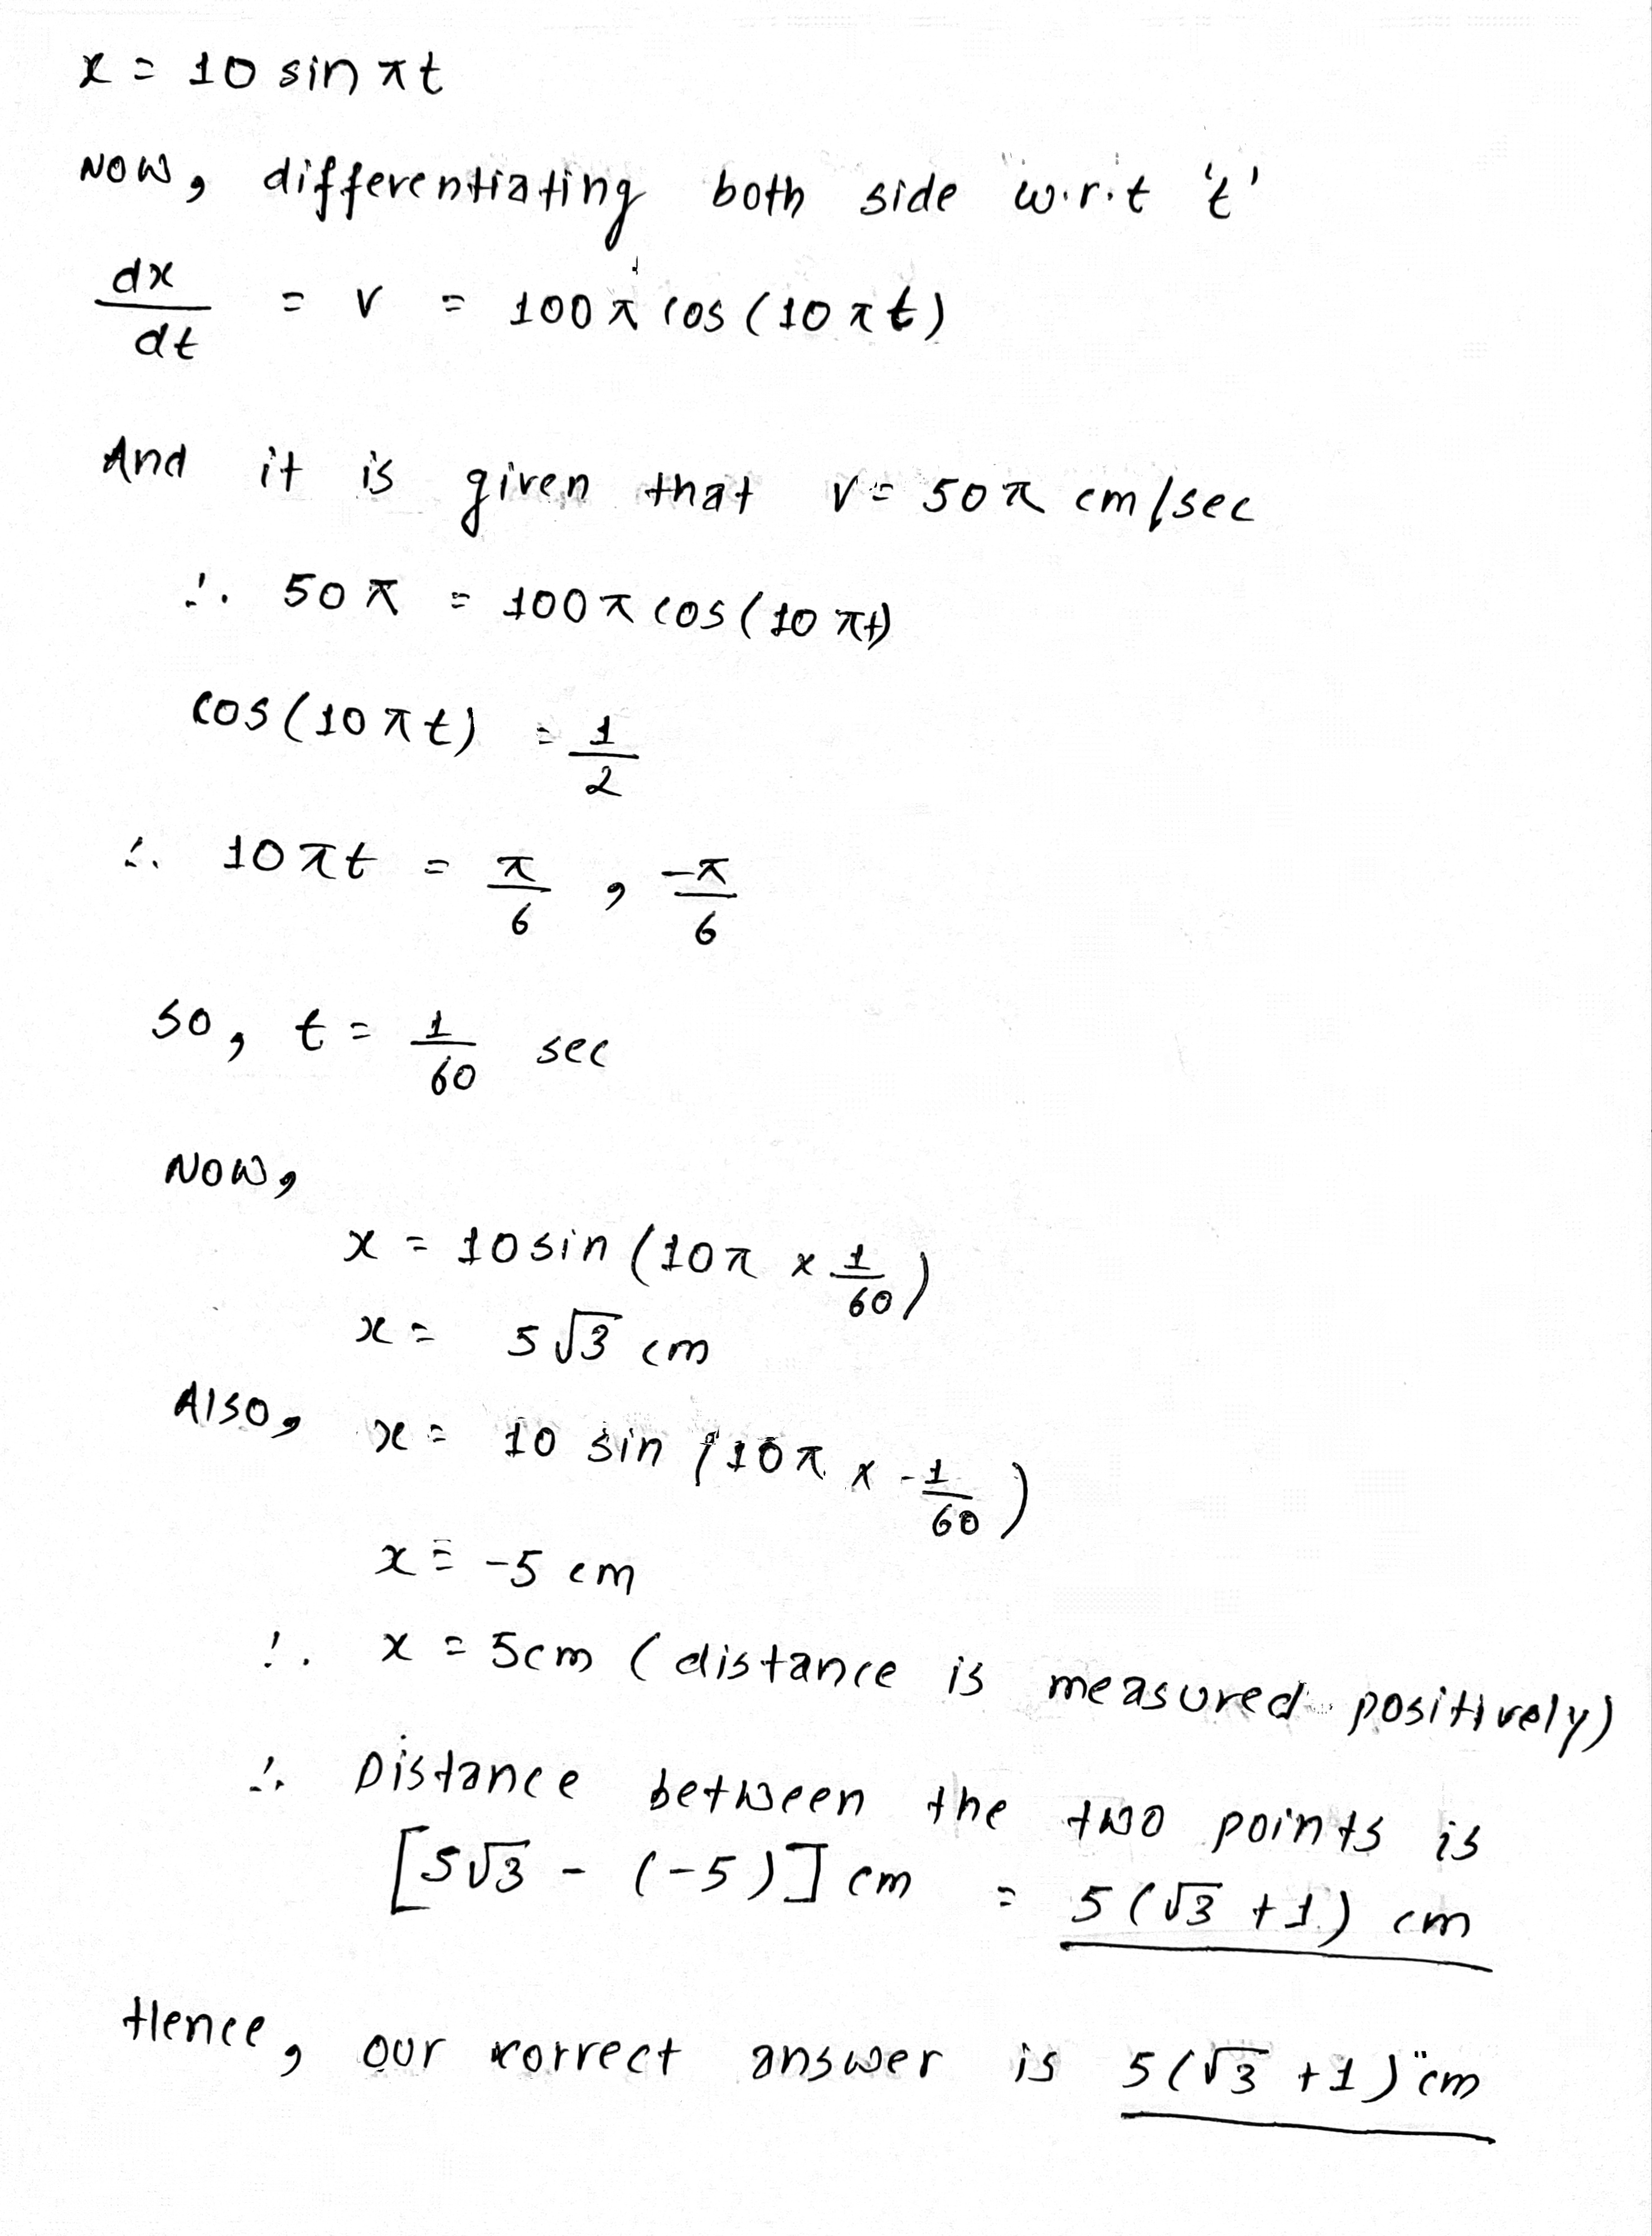 x = 10 sin πt
Now, differentiating both side w.r.t 't'
dx/dt = v = 100π cos(10πt)
And it is given that v = 50π cm/sec
∴ 50π = 100π cos(10πt)
cos(10πt) = 1/2
∴ 10πt = π/6 , -π/6
so, t = 1/60 sec
Now,
x = 10 sin (10π × 1/60)
x = 5√3 cm
Also, x = 10 sin (10π × -1/60)
x = -5 cm
∴ x = 5cm (distance is measured positively)
∴ Distance between the two points is
[5√3 - (-5)] cm = 5(√3 + 1) cm
Hence, our correct answer is 5(√3 + 1) cm